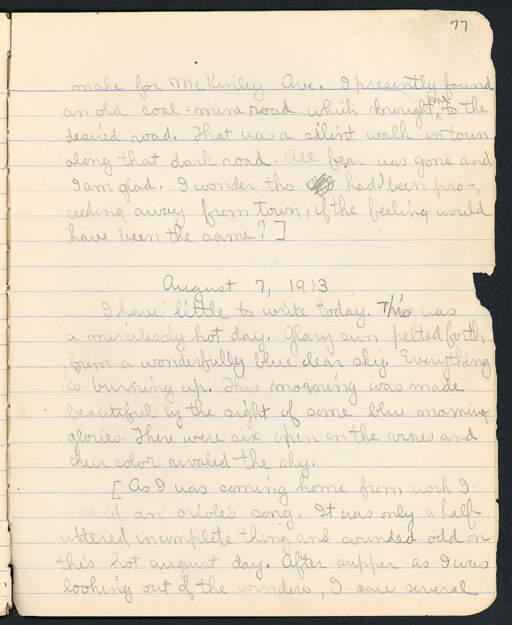 77
make for McKinley Ave. I presently found
an old coal-mine road which brought me to the
desired road. That was a silent walk in town
along that dark road. All fear was gone and
I am glad. I wonder tho had I been pro-
ceeding away from town, if the feeling would
have been the same?]
August 7, 1913
I have little to write today. This was
a mercilessly hot day. Glary sun pelted forth
from a wonderfully blue clear sky. Everything
is burning up. This morning was made
beautiful by the sight of some blue morning
glories. There were six open on the vines and
their color rivaled the sky.
[As I was coming home from work I
heard an oriole's song. It was only a half
uttered, incomplete thing and sounded odd on
this hot august day. After supper as I was
looking out of the windows, I saw several